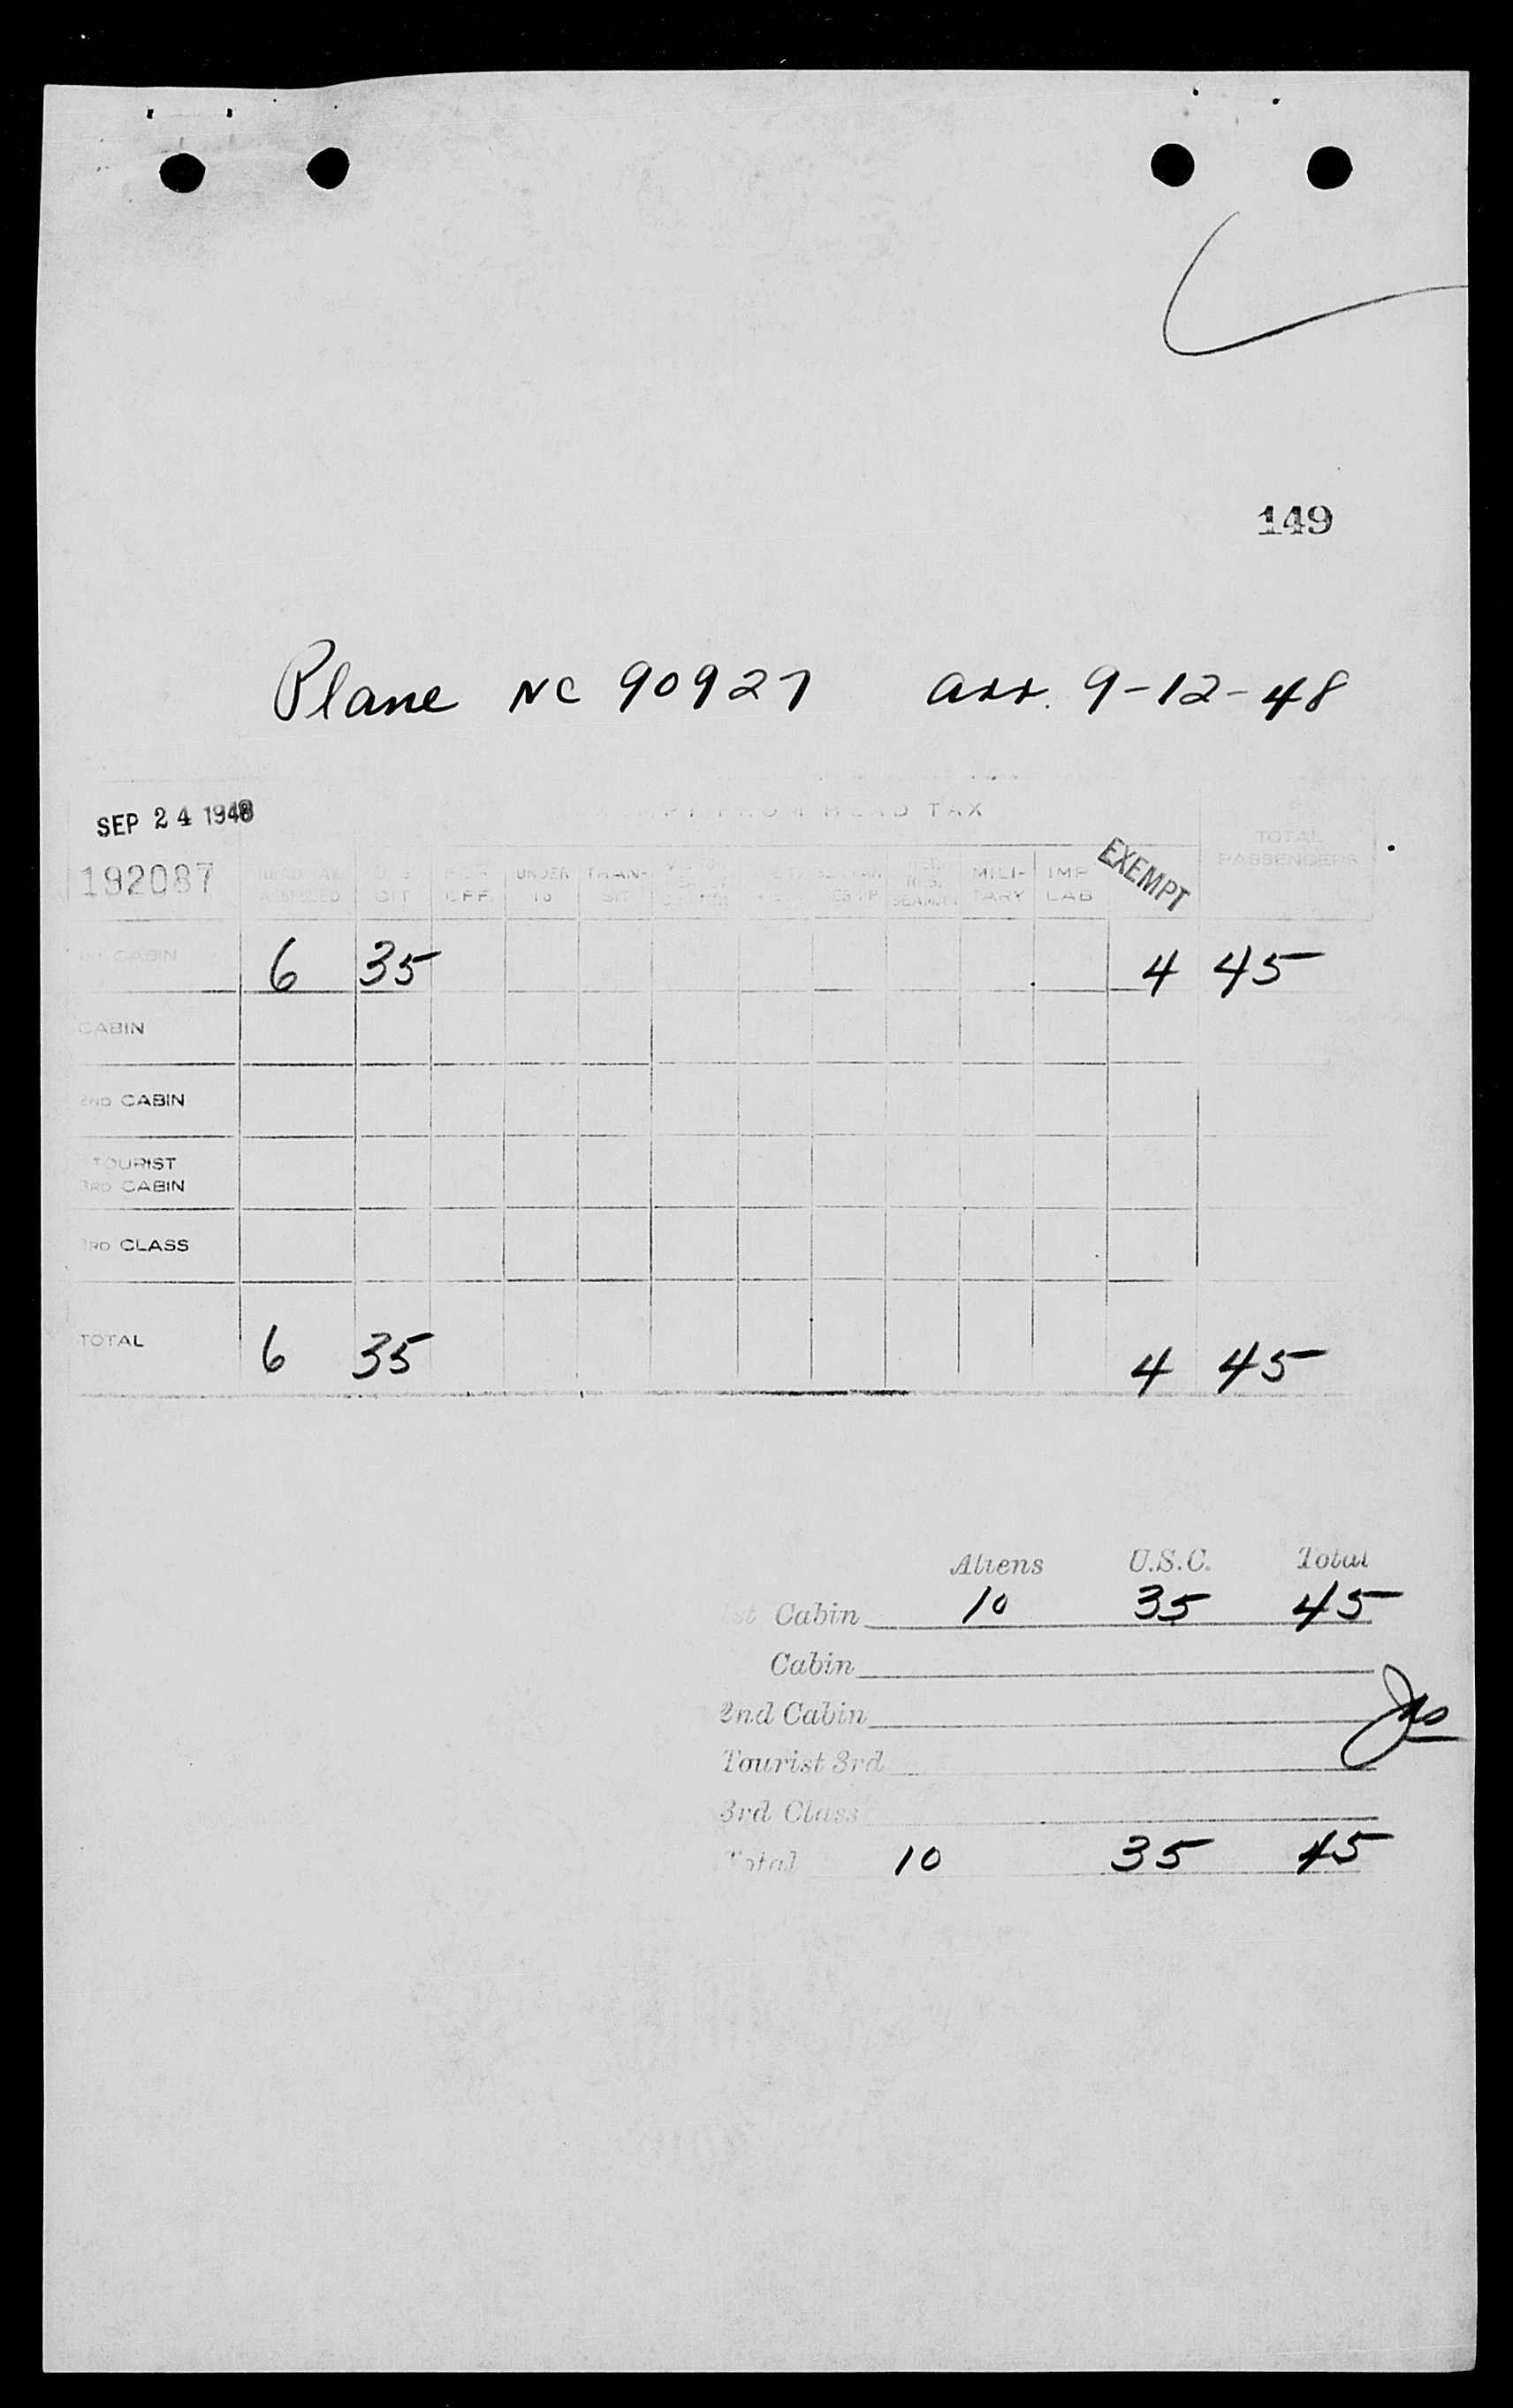 149
Plane NC 90927 arr. 9-12-48
SEP 24 1948
HEAD TAX
TOTAL
PASSENGERS
192087
HEAD TAX
ASSESSED
CIT
OFF.
UNDER
16
TRAN-
SIT
RES.
SEAMEN
MILI-
TARY
IMP
LAB
EXEMPT
1ST CABIN 6 35 4 45
CABIN
2ND CABIN
TOURIST
3RD CABIN
3RD CLASS
TOTAL 6 35 4 45
Aliens U.S.C. Total
1st Cabin 10 35 45
Cabin
2nd Cabin
Tourist 3rd
3rd Class
Total 10 35 45